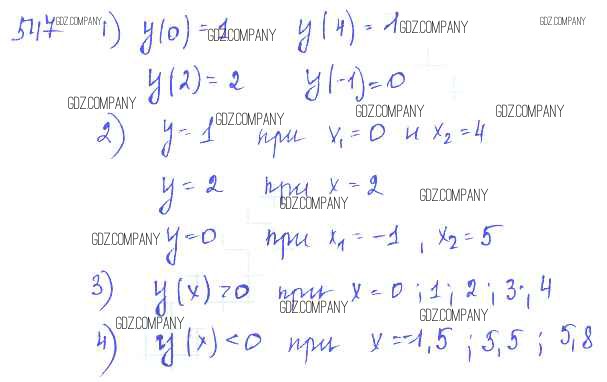 547 GDZ.COMPANY 1) y(0)=1 GDZ.COMPANY y(4)=1 GDZ.COMPANY GDZ.COMPANY
y(2)=2 y(-1)=0
GDZ.COMPANY GDZ.COMPANY GDZ.COMPANY GDZ.COMPANY
2) y=1 при x₁=0 и x₂=4
y=2 при x=2 GDZ.COMPANY
GDZ.COMPANY
GDZ.COMPANY y=0 при x₁=-1, x₂=5
3) y(x)>0 при x=0; 1; 2; 3; 4
GDZ.COMPANY GDZ.COMPANY GDZ.COMPANY
4) y(x)<0 при x=-1,5; 5,5; 5,8